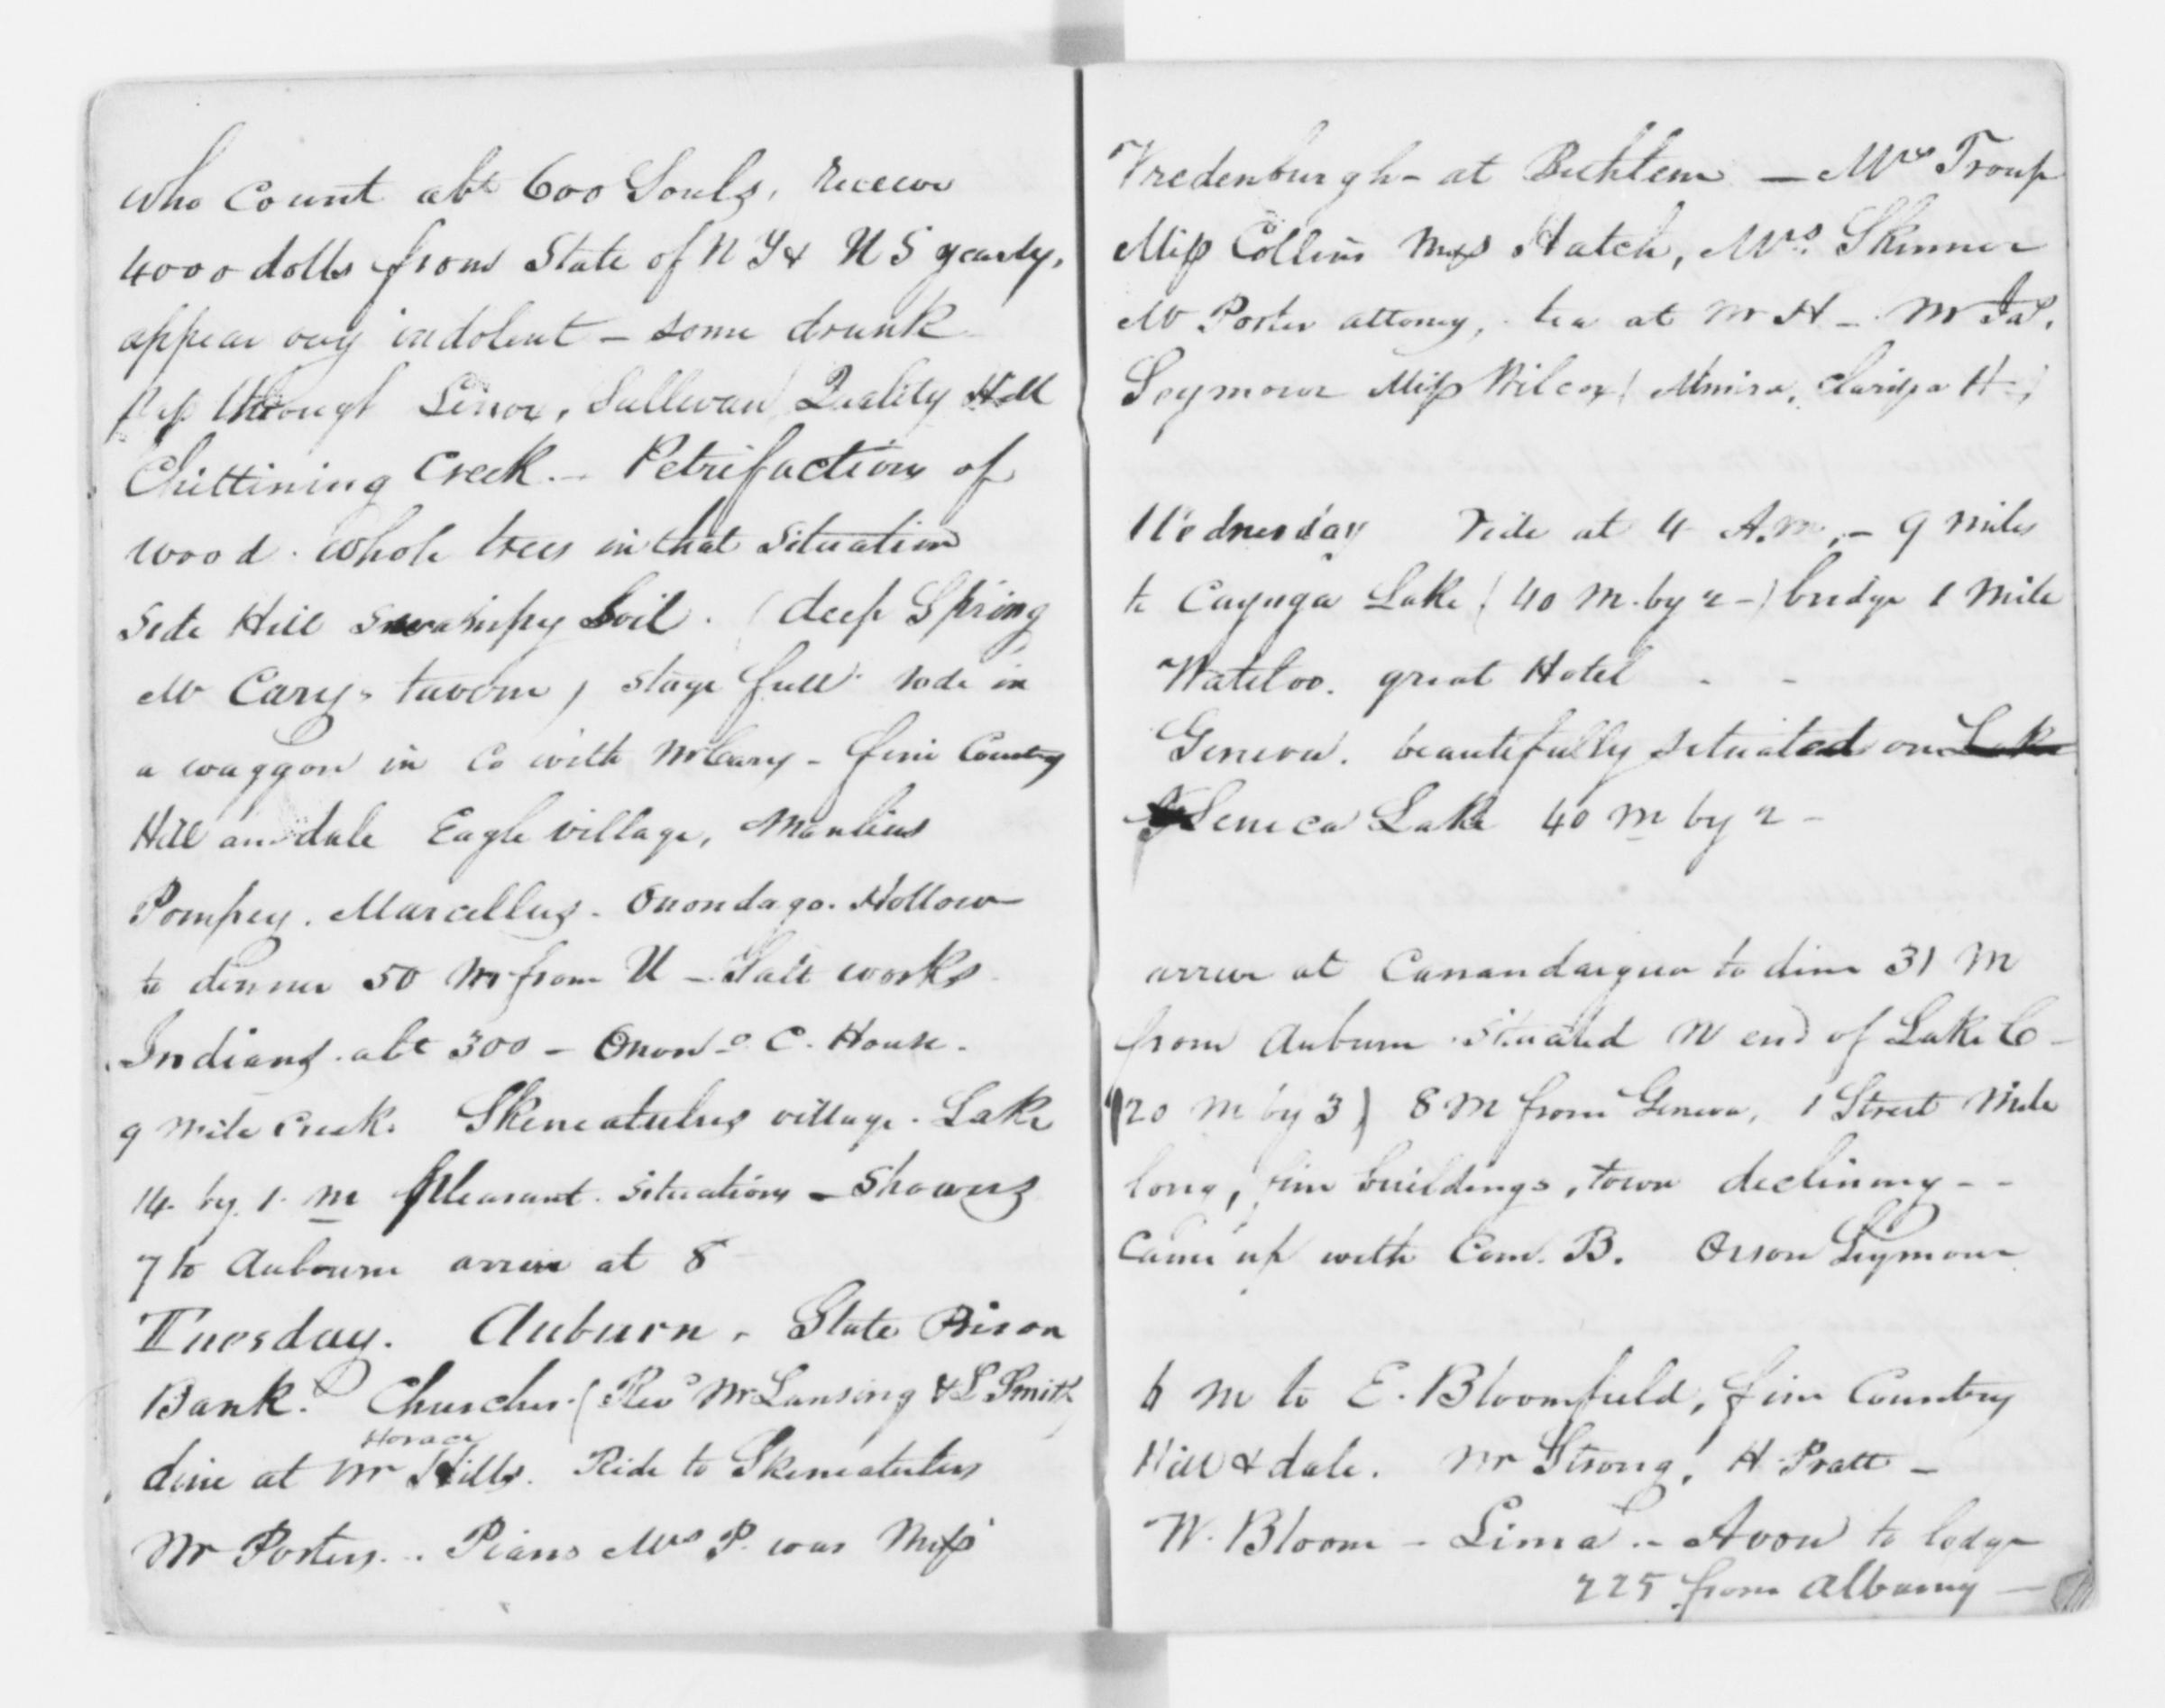 who count abt 600 Souls, receive
4000 dolls from State of N Y & U S yearly,
appear very indolent – some drunk
pass through Lenox, Sullivan Quality Hill
Chittining Creek. – Petrifactions of
wood. whole trees in that situation
side Hill swampy soil. (deep Spring
Mr Carys tavern) stage full rode in
a waggon in Co with Mr Cary – fine Country
Hill and dale Eagle village, Manlius
Pompey. Marcellus – Onondago Hollow
to dinner 50 M from U – Salt works
Indians abt 300 – Onono C. House.
9 mile creek. Skeneatules village. Lake
14 by 1 m pleasant situation – showers
7 to Aubourn arrive at 8
Tuesday. Auburn. State Prison
Bank. Churches (Revd Mr Lansing & L Smith)
Horace
dine at Mr Hills. Ride to Skeneatules
Mr Porters.. Piano Mrs P. was Miss
Vredenburgh – at Bethlem – Mrs Troup
Miss Collins Miss Hatch, Mrs. Skinner
Mr Porter attorney, tea at Mr H – Mr Jas.
Seymour Miss Wilcox (Almira, Clarissa H –)
Wednesday ride at 4 A.M. – 9 miles
to Cayuga Lake (40 m. by 2 –) bridge 1 mile
Waterloo. great Hotel - -
Geneva. beautifully situated on Lake
Seneca Lake 40 m by 2 –
arrive at Canandaigua to dine 31 M
from Auburn situated N end of Lake C –
(20 m by 3) 8 M from Geneva, 1 Street Mile
long, fine buildings, town declining - -
Came up with Com. B. Orson Seymour
6 M to E. Bloomfield, fine Country
Hill & dale. Mr Strong, H Pratt –
W. Bloom – Lima – Avon to lodge
225 from Albany –